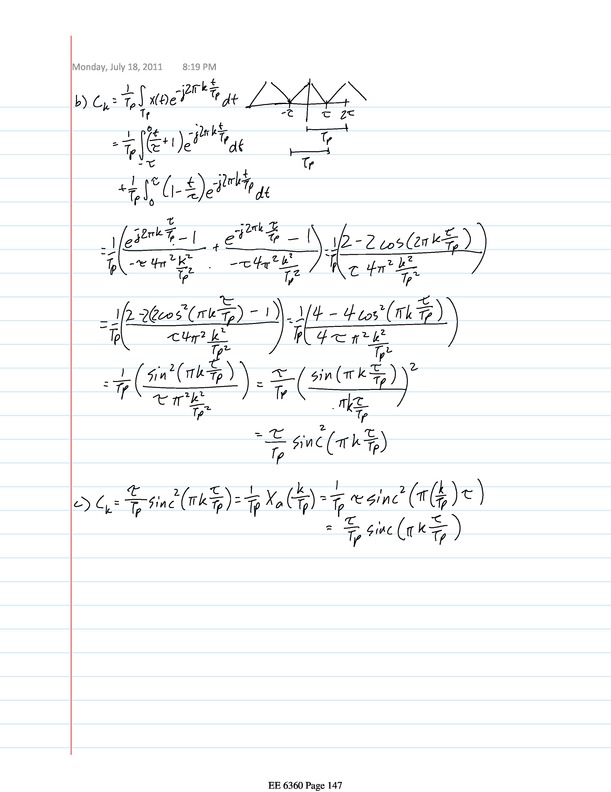 Monday, July 18, 2011 8:19 PM
b) C_k = 1/Tp ∫_Tp x(t) e^{-j2πk t/Tp} dt
-τ τ 2τ
Tp
Tp
= 1/Tp ∫_{-τ}^{0} (t/τ + 1) e^{-j2πk t/Tp} dt
+ 1/Tp ∫_0^τ (1 - t/τ) e^{-j2πk t/Tp} dt
= 1/Tp ( (e^{j2πk τ/Tp} - 1)/(-τ4π² k²/Tp²) + (e^{-j2πk τ/Tp} - 1)/(-τ4π² k²/Tp²) ) = 1/Tp ( (2 - 2cos(2πk τ/Tp))/(τ 4π² k²/Tp²) )
= 1/Tp ( (2 - 2(2cos²(πk τ/Tp) - 1))/(τ4π² k²/Tp²) ) = 1/Tp ( (4 - 4cos²(πk τ/Tp))/(4τπ² k²/Tp²) )
= 1/Tp ( sin²(πk τ/Tp)/(τ π² k²/Tp²) ) = τ/Tp ( sin(πk τ/Tp)/(πk τ/Tp) )²
= τ/Tp sinc²(πk τ/Tp)
c) C_k = τ/Tp sinc²(πk τ/Tp) = 1/Tp X_a(k/Tp) = 1/Tp τ sinc²(π(k/Tp)τ)
= τ/Tp sinc(πk τ/Tp)
EE 6360 Page 147